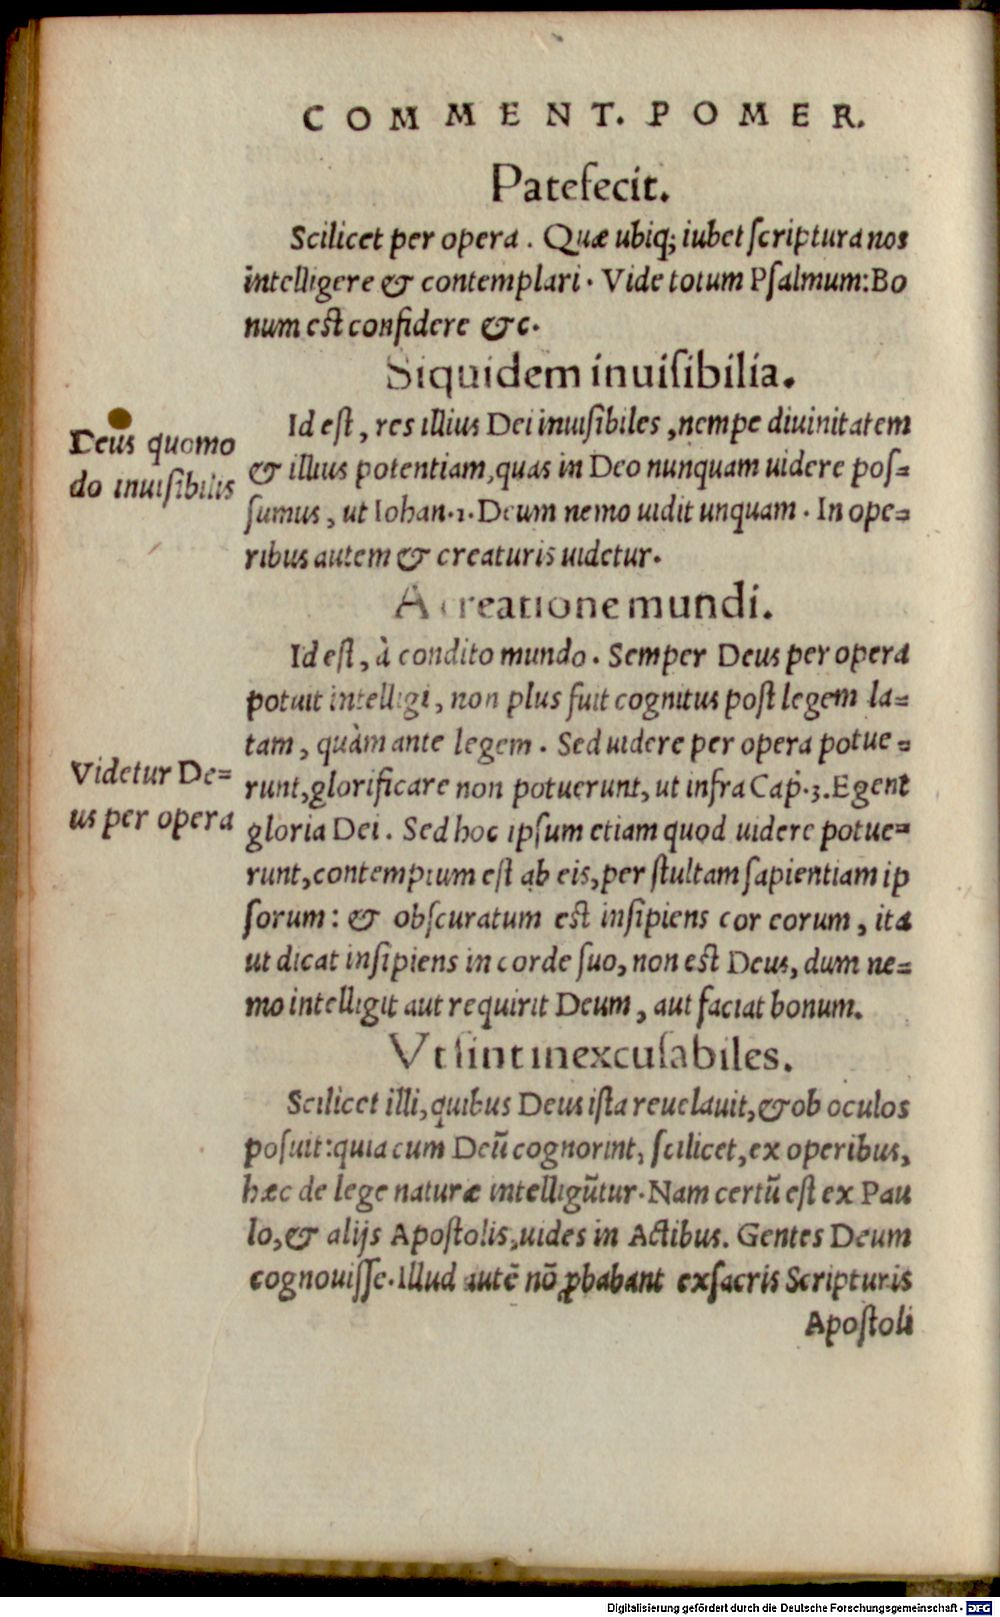 COMMENT. POMER.
Patefecit.
Scilicet per opera. Quæ ubiq; iubet ſcriptura nos
intelligere & contemplari. Vide totum Pſalmum: Bo
num eſt confidere &c.
Siquidem inuiſibilia.
Id eſt, res illius Dei inuiſibiles, nempe diuinitatem
Deus quomo
do inuiſibilis
& illius potentiam, quas in Deo nunquam uidere poſ-
ſumus, ut Iohan. 1. Deum nemo uidit unquam. In ope-
ribus autem & creaturis uidetur.
A creatione mundi.
Id eſt, à condito mundo. Semper Deus per opera
potuit intelligi, non plus fuit cognitus poſt legem la-
tam, quàm ante legem. Sed uidere per opera potue-
Videtur De-
us per opera
runt, glorificare non potuerunt, ut infra Cap. 3. Egent
gloria Dei. Sed hoc ipſum etiam quod uidere potue-
runt, contemptum eſt ab eis, per ſtultam ſapientiam ip
ſorum: & obſcuratum eſt inſipiens cor eorum, ita
ut dicat inſipiens in corde ſuo, non eſt Deus, dum ne-
mo intelligit aut requirit Deum, aut faciat bonum.
Vt ſint inexcuſabiles.
Scilicet illi, quibus Deus iſta reuelauit, & ob oculos
poſuit: quia cum Deũ cognorint, ſcilicet, ex operibus,
hæc de lege naturæ intelligũtur. Nam certũ eſt ex Pau
lo, & alijs Apoſtolis, uides in Actibus. Gentes Deum
cognouiſſe. Illud autẽ nõ ꝓbabant ex ſacris Scripturis
Apoſtoli
Digitalisierung gefördert durch die Deutsche Forschungsgemeinschaft - DFG